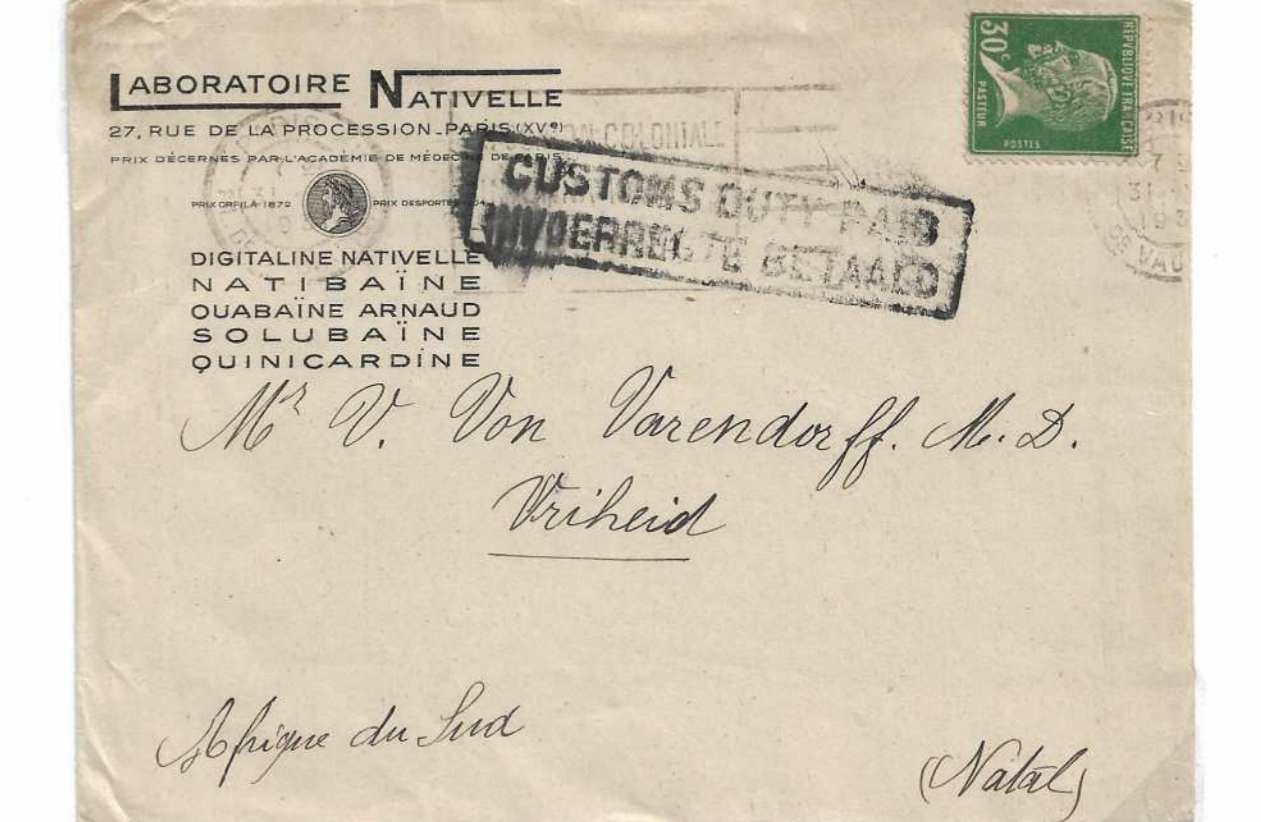 LABORATOIRE NATIVELLE
27, RUE DE LA PROCESSION - PARIS (XVe)
PRIX DÉCERNÉS PAR L'ACADÉMIE DE MÉDECINE DE PARIS
PRIX ORFILA 1872 PRIX DESPORTES
DIGITALINE NATIVELLE
NATIBAÏNE
OUABAÏNE ARNAUD
SOLUBAÏNE
QUINICARDINE
COLONIALE
CUSTOMS DUTY PAID
INVOERREGTE BETAALD
30c
REPUBLIQUE FRANCAISE
PASTEUR
POSTES
PARIS
7
31
193
DE VAU
Mr V. Von Varendorff. M. D.
Vriheid
Afrique du Sud
(Natal)